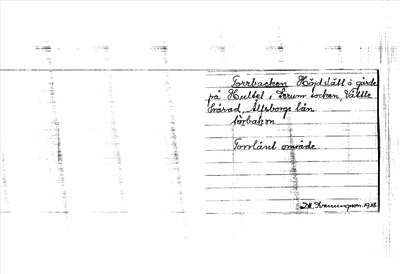 Torrbacken Högdslätt å gärde
på Hultet i Skrum socken, Vättle
härad, Älfsborgs län
torbakon
Torrlänt område
1928